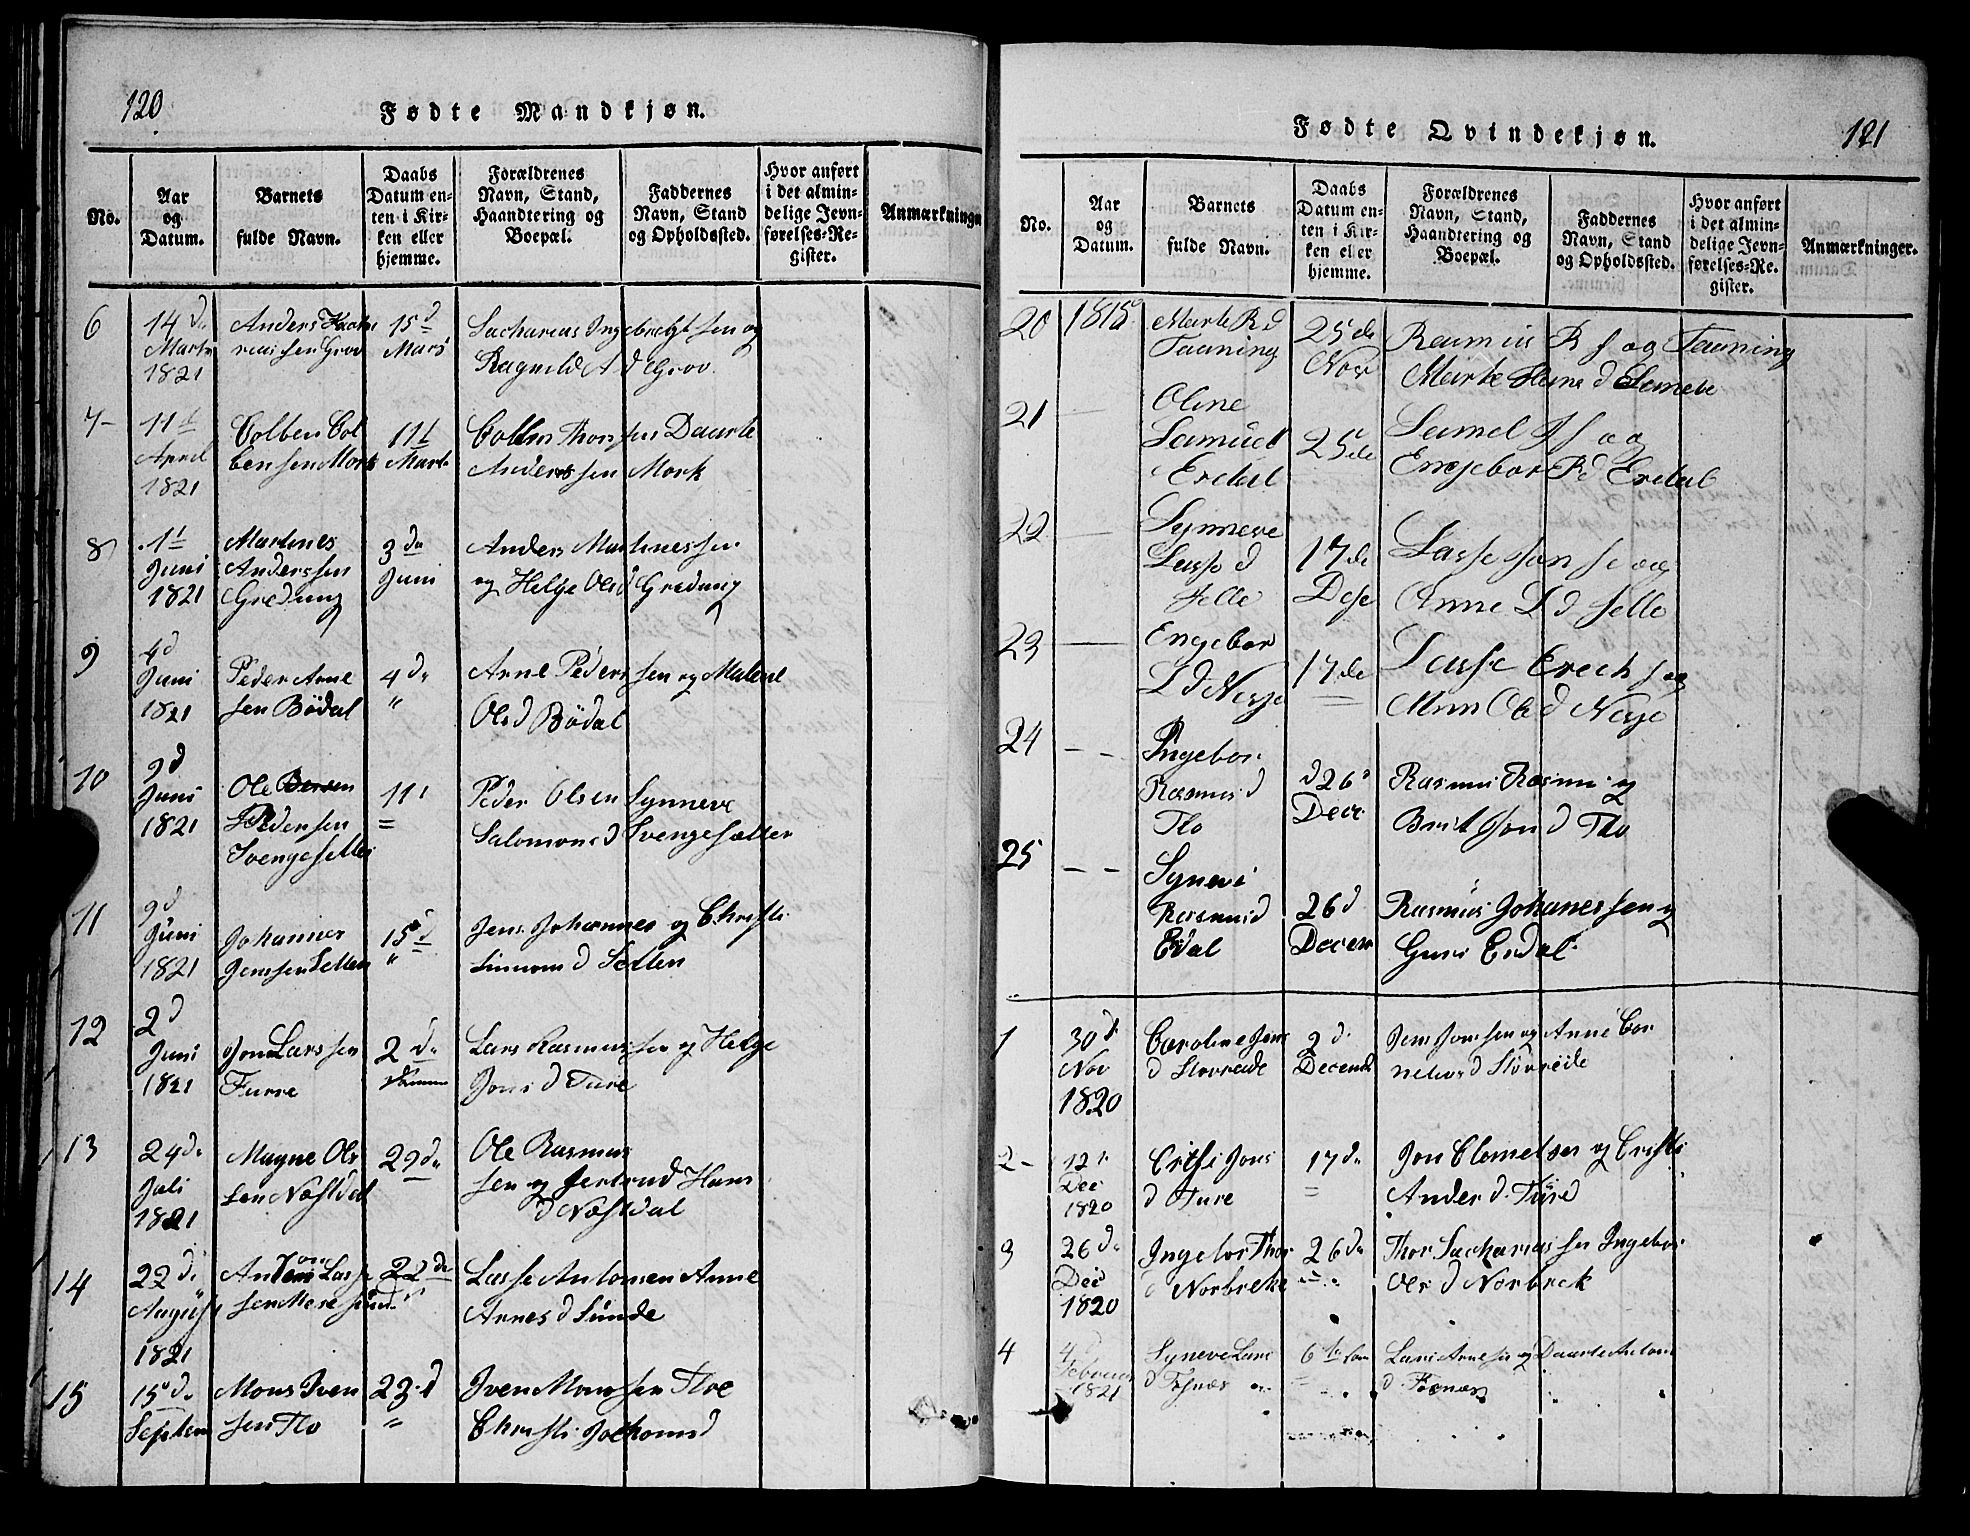 120
Fødte Mandkjøn.
No.
Aar
og
Datum.
Barnets
fulde Navn.
Daabs
Datum en-
ten i Kir-
ken eller
hjemme.
Forældrenes
Navn, Stand,
Haandtering og
Boepæl.
Faddernes
Navn, Stand
og Opholdssted.
Hvor anført
i det almin-
delige Jevn-
førelses-Re-
gister.
Anmærkninge
6
14 d.
Marts
1821
Anders
sen Grov
15 d
Mars
Sacharias Ingebregtsen og
Ragnild A d Grov
7
11 t
April
1821
Colben Col
bensen Mork
11 t
Marts
Colben Thorsen Daarte
Anderssen Mork
8
1 t
Juni
1821
Martines
Anderssen
Greding
3 de
Juni
Anders Martinessen
og Helge Ols d Greding
9
4 d
Juni
1821
Peder Arne
sen Bödal
4 de
"
Arne Pedersen og Malene
Ols d Bödal
10
9 d
Juni
1821
Ole
Pedersen
Svengesetter
11
=
Peder Olsen Synneve
Salomons d Svengesætter
11
9 d
Juni
1821
Johannes
Jenssen Setten
15 d
"
Jens Johannes og Christi
d Setten
12
2 d
Juni
1821
Jon Larssen
Furre
2 de
Lars Rasmussen og Helge
Jons d Fure
13
24 d.
Juli
1821
Magne Ols
sen Nøstdal
29 de
Ole Rasmus
sen og Gertrud Hans
d Nøstdal
14
22 d.
August
1821
Lasse
sen
22 de
Lasse Antonsen Anne
Arnes d Sunde
15
15 d.
Septem
Mons Iven
sen Flo
23 d
"
Iven Monssen Floe
Christi Jochoms d
121
Fødte Qvindekjøn.
No.
Aar
og
Datum.
Barnets
fulde Navn.
Daabs
Datum en-
ten i Kir-
ken eller
hjemme.
Forældrenes
Navn, Stand,
Haandtering og
Boepæl.
Faddernes
Navn, Stand
og Opholdssted.
Hvor anført
i det almin-
delige Jevn-
førelses-Re-
gister.
Anmærkninger.
20
1815
Marte R d
Tauning
25 de
Nov
Rasmus R s og Tauning
Marte d
21
Oline
Samuel
Erdal
25 de
Samel J s og
Engebor R d Erdal
22
Synneve
Lasse d
Jelle
17 de
Dese
Lasse Jon s og
Anne L d Jelle
23
Engebor
L d Nesje
17 de
Lasse Erech s og
Ole d Nesje
24
Ingebor
Rasmus d
Flo
d 26
Decr
Rasmus Rasmus og
Brit Jon d Flo
25
Synevi
Rasmus d
Erdal
26 d
Decem
Rasmus Johanessen og
Guri Erdal
1
30 d
Nov
1820
Caroline Jens
d Storreide
2 d.
Decemb
Jens Jonssen og Anne Cor
nelius d Storreide
2
12
Dec
1820
Critsi Jons
d Fure
17 de
=
Jon Clometsen og Cristi
Ander d Fure
3
26 d.
Dec
1820
Ingebor Thor
d Norbreke
26 de
Thor Sachariassen Ingebor
Ols d Norbrek
4
4 d
Februar
1821
Syneve Lars
d Fosnæs
6 te
Lars Arnesen og Daarte Antons
d Fosnæs